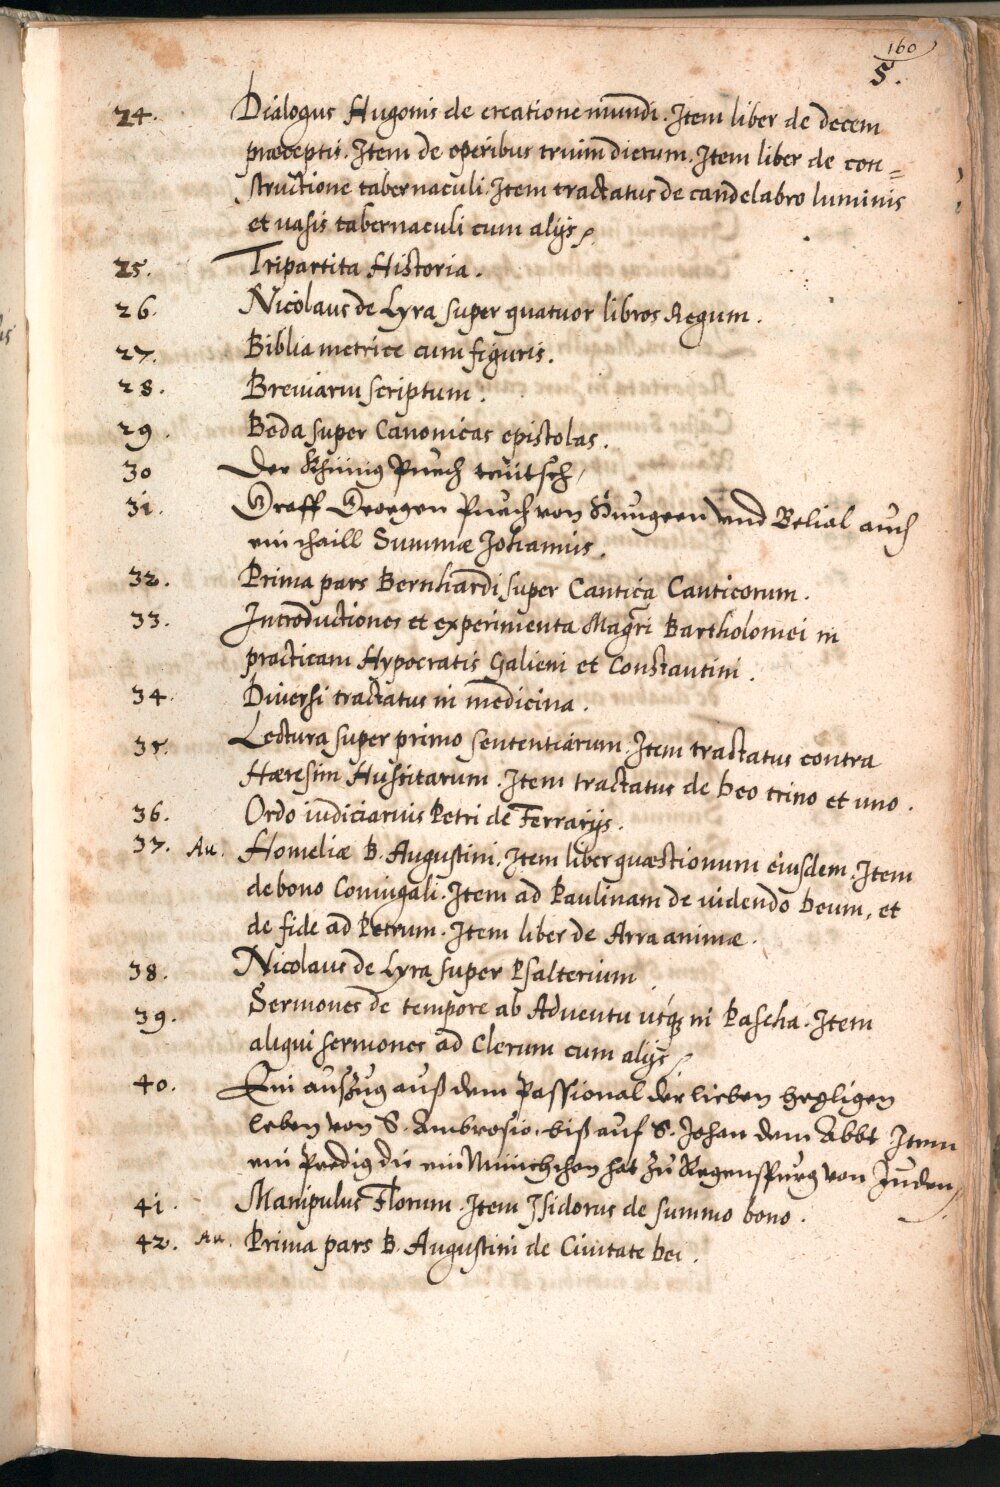 160
5.
24. Dialogus Hugonis de creatione mundi. Item liber de decem
præceptis. Item de operibus trium dierum. Item liber de con=
structione tabernaculi. Item tractatus de candelabro luminis
et uasis tabernaculi cum alijs
25. Tripartita Historia.
26. Nicolaus de Lyra super quatuor libros Regum.
27. Biblia metrice cum figuris.
28. Breuiariū scriptum.
29. Beda super Canonicas epistolas.
30 Der Khünig Puech teütsch
31. Graff Georgen Puech von Hungern vnd Belial auch
ein thaill Summæ Johannis.
32. Prima pars Bernhardi super Cantica Canticorum.
33. Introductiones et experimenta Magri Bartholomei in
practicam Hypocratis Galieni et Constantini.
34. Diuersi tractatus in medicina.
35. Lectura super primo sententiarum. Item tractatus contra
Hæresim Hussitarum. Item tractatus de Deo trino et uno.
36. Ordo iudiciarius Petri de Ferrarijs.
37. Au. Homeliæ B. Augustini. Item liber quæstionum eiusdem. Item
de bono Coniugali. Item ad Paulinam de uidendo Deum, et
de fide ad Petrum. Item liber de Arra animæ.
38. Nicolaus de Lyra super Psalterium.
39. Sermones de tempore ab Aduentu usq; in Pascha. Item
aliqui sermones ad Clerum cum alijs
40. Ein auszug auß dem Passional der lieben heyligen
leben von S. Ambrosio biß auf S. Johan dem Abbt Item
ein Predig die ein Münch hat zu Regenspurg von Juden
41. Manipulus Florum. Item Isidorus de summo bono.
42. Au. Prima pars B. Augustini de Ciuitate Dei.